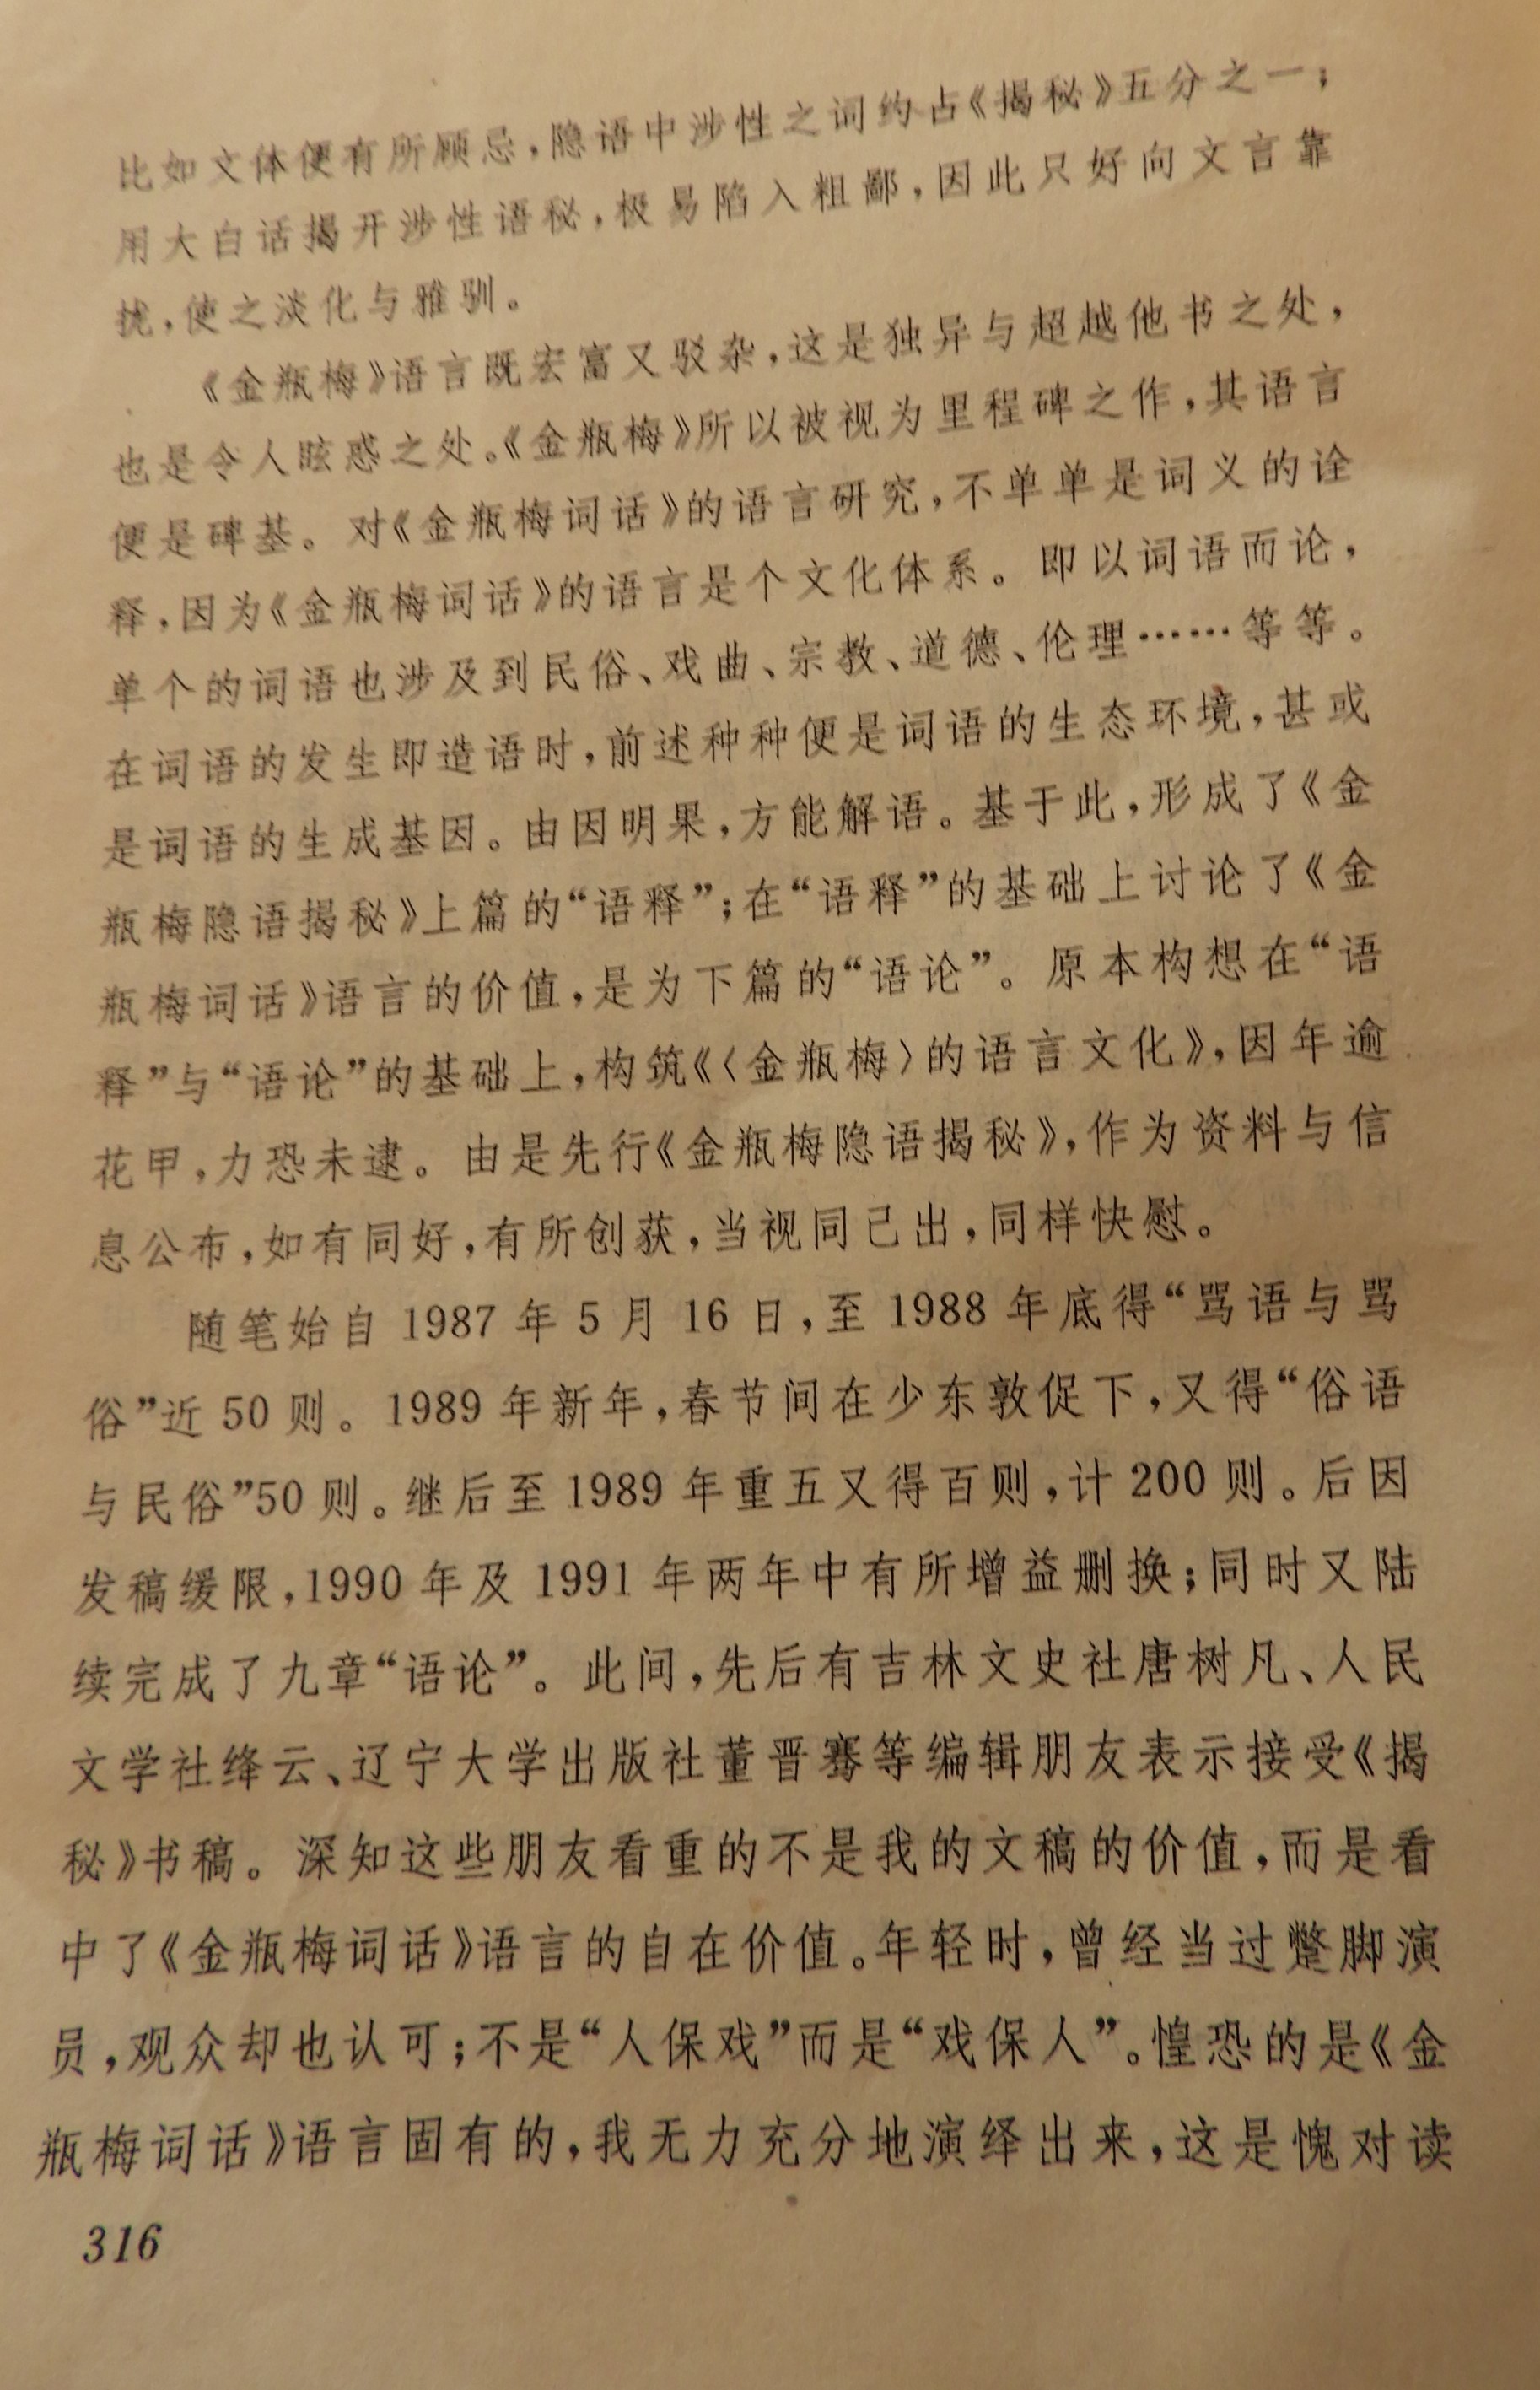 比如文体便有所顾忌，隐语中涉性之词约占《揭秘》五分之一；
用大白话揭开涉性语秘，极易陷入粗鄙，因此只好向文言靠
拢，使之淡化与雅驯。
《金瓶梅》语言既宏富又驳杂，这是独异与超越他书之处，
也是令人眩惑之处。《金瓶梅》所以被视为里程碑之作，其语言
便是碑基。对《金瓶梅词话》的语言研究，不单单是词义的诠
释，因为《金瓶梅词话》的语言是个文化体系。即以词语而论，
单个的词语也涉及到民俗、戏曲、宗教、道德、伦理……等等。
在词语的发生即造语时，前述种种便是词语的生态环境，甚或
是词语的生成基因。由因明果，方能解语。基于此，形成了《金
瓶梅隐语揭秘》上篇的“语释”；在“语释”的基础上讨论了《金
瓶梅词话》语言的价值，是为下篇的“语论”。原本构想在“语
释”与“语论”的基础上，构筑《〈金瓶梅〉的语言文化》，因年逾
花甲，力恐未逮。由是先行《金瓶梅隐语揭秘》，作为资料与信
息公布，如有同好，有所创获，当视同己出，同样快慰。
随笔始自 1987 年 5 月 16 日，至 1988 年底得“骂语与骂
俗”近 50 则。1989 年新年，春节间在少东敦促下，又得“俗语
与民俗”50 则。继后至 1989 年重五又得百则，计 200 则。后因
发稿缓限，1990 年及 1991 年两年中有所增益删换；同时又陆
续完成了九章“语论”。此间，先后有吉林文史社唐树凡、人民
文学社绛云、辽宁大学出版社董晋骞等编辑朋友表示接受《揭
秘》书稿。深知这些朋友看重的不是我的文稿的价值，而是看
中了《金瓶梅词话》语言的自在价值。年轻时，曾经当过蹩脚演
员，观众却也认可；不是“人保戏”而是“戏保人”。惶恐的是《金
瓶梅词话》语言固有的，我无力充分地演绎出来，这是愧对读
316